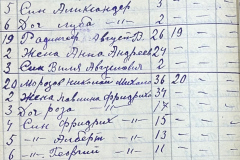 5 Син Александер 3 - - -
6 Доч Люба -"- 2 - - -
19 Радингер Август В. 26 19 - -
2 Жена Анна Андреев 24 - - -
3 Син Виля Августович 2 - - -
20 Морозов Николай Михайло 36 20 - -
2 Жена Павлина Фридрихо 37 - -
3 Доч роза -"- 17 - - -
4 Син Фридрих -"- 15 - - -
5 -"- Альберт -"- 13 - -
6 -"- Георгий -"- 11 - -